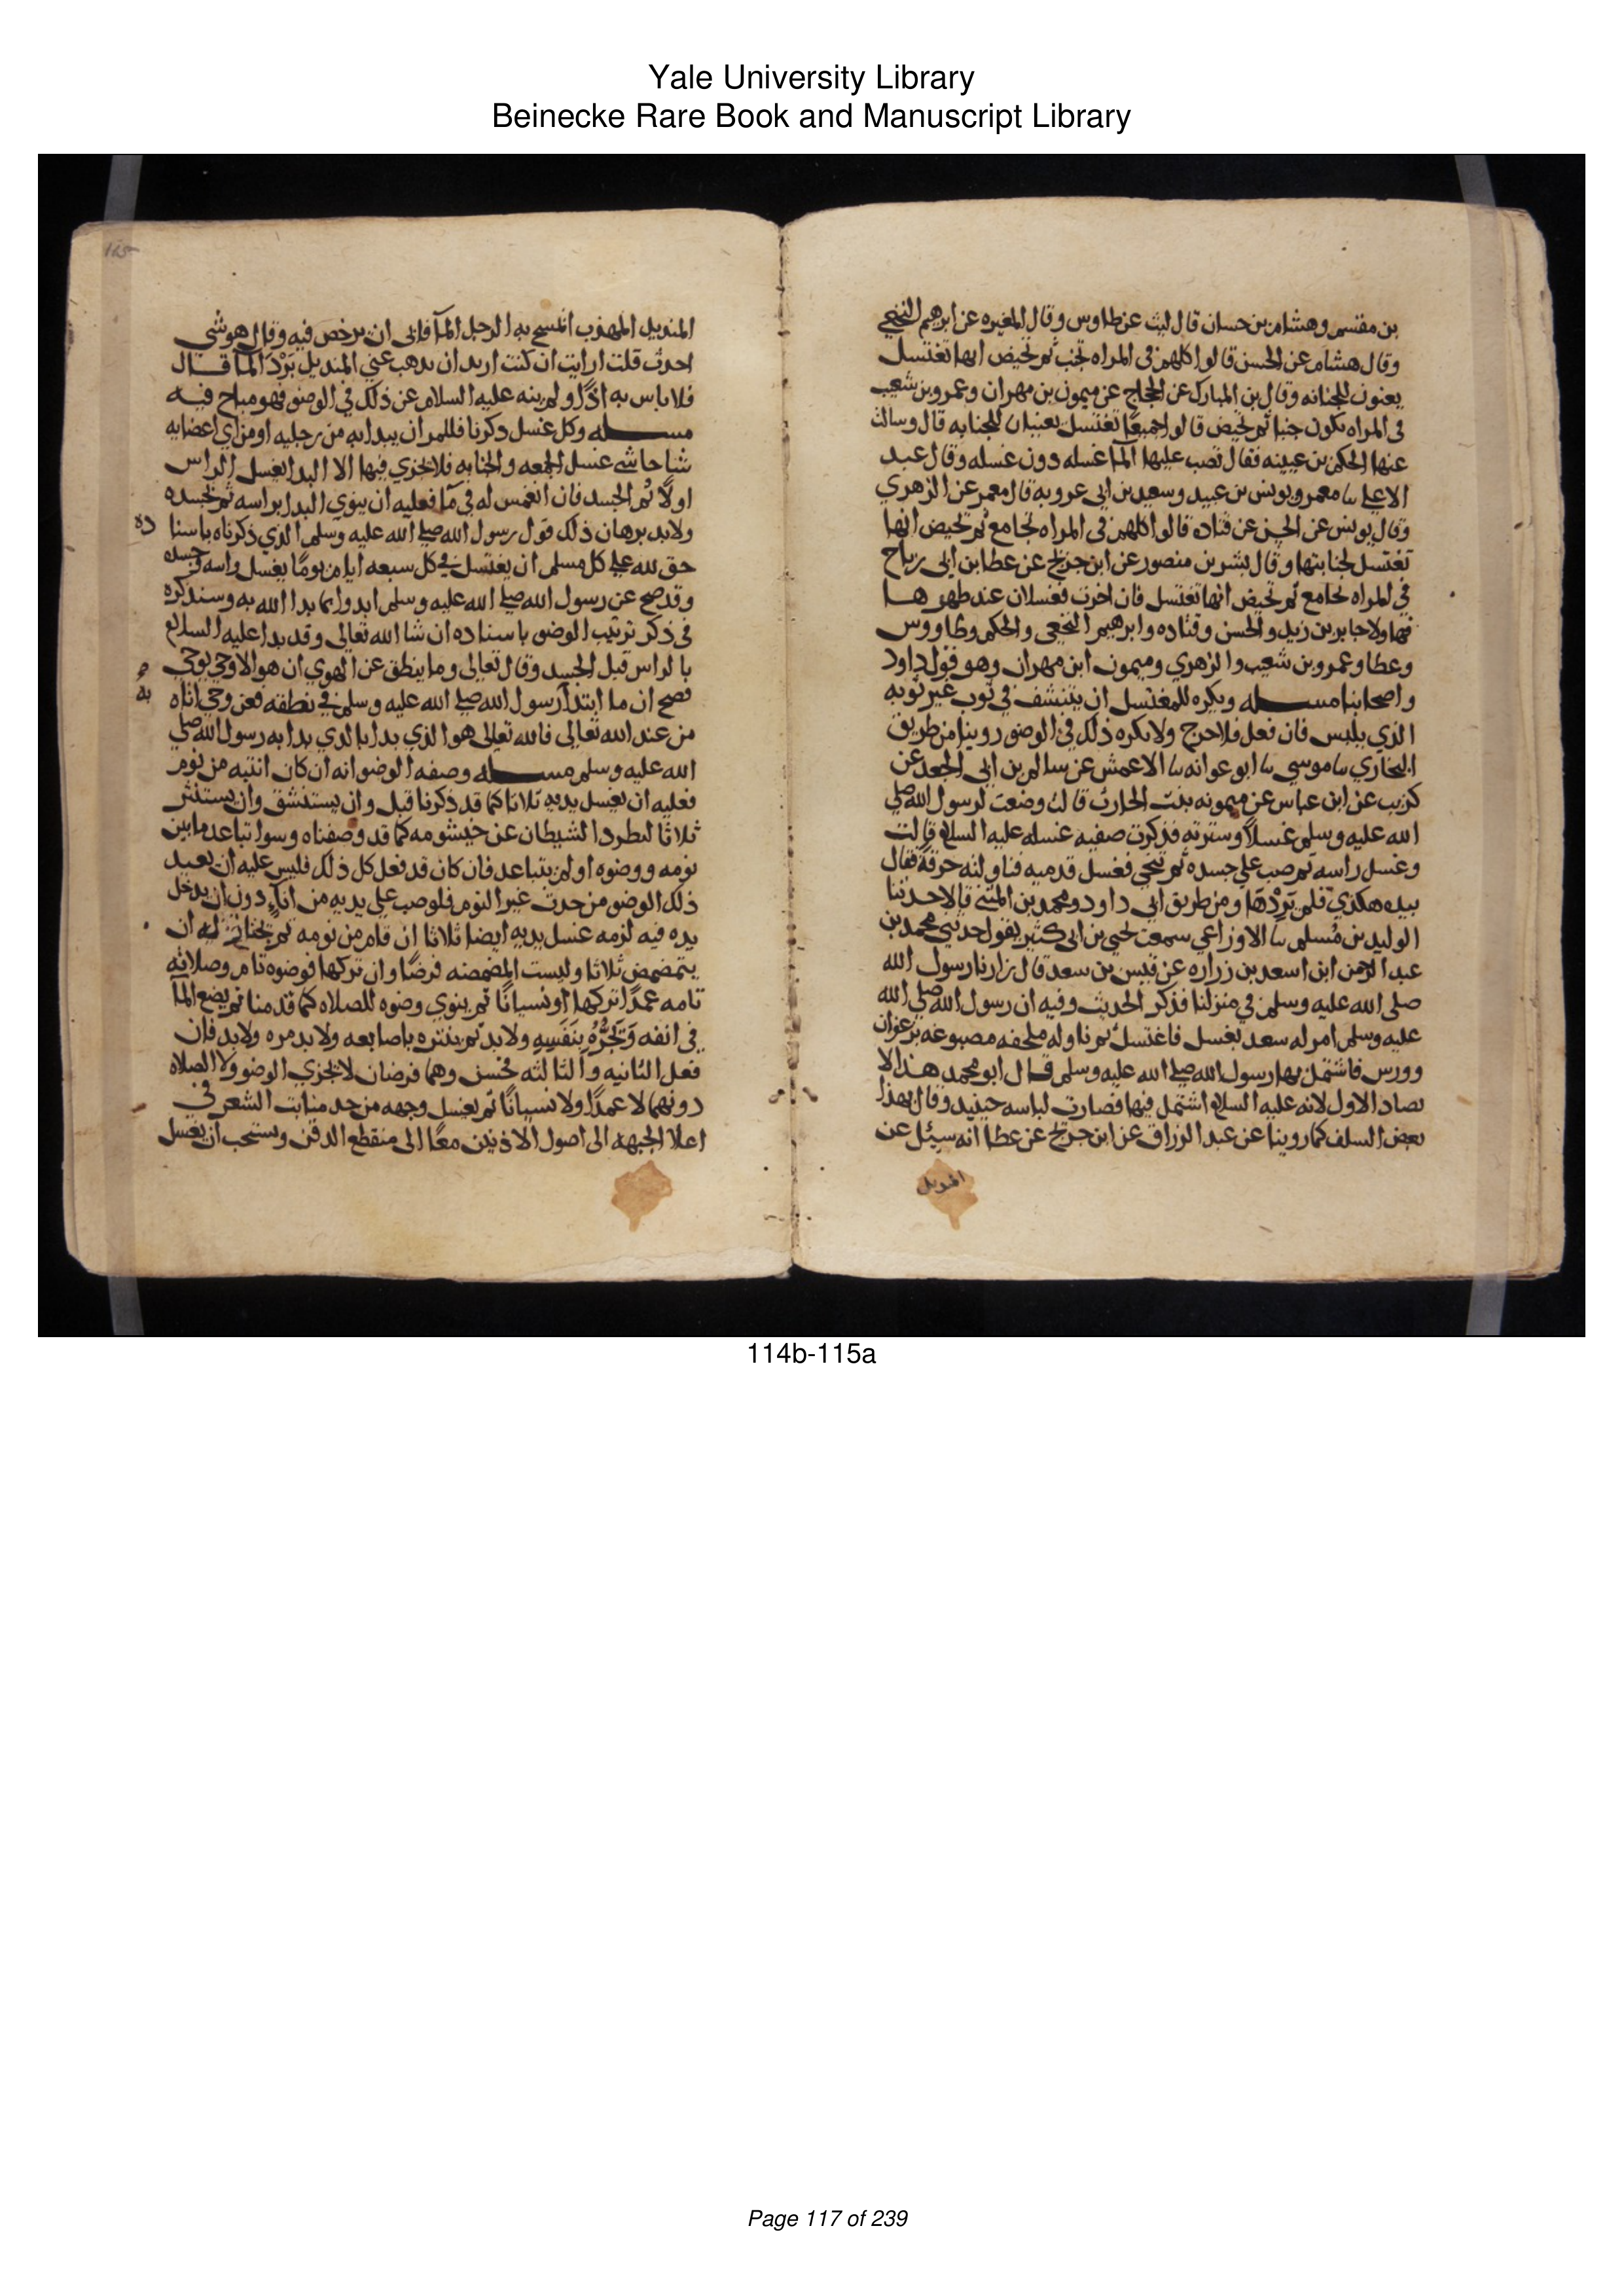 Yale University Library
Beinecke Rare Book and Manuscript Library
بن مقسم وهشام بن حسان قال ليث عن طاوس وقال المغيره عن ابرهيم النخعي
وقال هشام عن الحسن قالوا كلهم في المراه تجنب ثم تحيض انها تغتسل
يعنون للجنابه وقال بن المبارك عن الحجاج عن ميمون بن مهران وعمرو بن شعيب
في المراه تكون جنبا ثم تحيض قالوا جميعًا تغتسل يعنيان للجنابه قال وسالت
عنها الحكم بن عيينه فقال تصب عليها المآ غسله دون غسله وقال عبد
الاعلى ىا معمر ويونس بن عبيد وسعيد بن ابي عروبه قال معمر عن الزهري
وقال يونس عن الحسن عن قتاده قالوا كلهم في المراه تجامع ثم تحيض انها
تغتسل لجنابتها وقال بشر بن منصور عن ابن جريج عن عطا بن ابي رباح
في المراه تجامع ثم تحيض انها تغتسل فان اخرت فغسلان عند طهرهــا
فهاولا جابر بن زيد والحسن وقتاده وابرهيم النخعي والحكم وطاووس
وعطا وعمرو بن شعيب والزهري وميمون ابن مهران وهو قول داود
واصحابنا مســله ويكره للمغتسل ان يتنشف في ثوب غير ثوبه
الذي يلبس فان فعل فلا حرج ولا يكره ذلك في الوضو روينا من طريق
البخاري ىا موسي ىا ابو عوانه ىا الاعمش عن سالم بن ابي الجعد عن
كريب عن ابن عباس عن ميمونه بنت الحارث قالت وضعت لرسول الله صلي
الله عليه وسلم غسلاً وسترته فذكرت صفه غسله عليه السلام قالت
وغسل راسه ثم صب علي جسده ثم تنحي فغسل قدميه فناولته خرقةً فقال
بيده هكذي فلم يَرِدْهَا ومن طريق ابي داود ومحمد بن المثني قالا حدثنا
الوليد بن مُسلم ىا الاوزاعي سمعت يحيي بن ابي كثير يقول حدثني محمد بن
عبد الرحمن ابن اسعد بن زراره عن قيس بن سعد قال زارنا رسول الله
صلي الله عليه وسلم في منزلنا فذكر الحديث وفيه ان رسول الله صلي الله
عليه وسلم امر له سعد بغسل فاغتسل ثم ناوله ملحفه مصبوغه بزعفران
وورس فاشتمل بها رسول الله صلي الله عليه وسلم قــال ابو محمد هــذا لا
يضاد الاول لانه عليه السلام اشتمل فيها فصارت لباسه حينيد وقال بهذا
بعض السلف كما روينا عن عبد الرزاق عن ابن جريج عن عطا انه سيئل عن
المنديل
المنديل المهذب ايمسح به الرجل المآ فابى ان يرخص فيه وقال هو شي
احدث قلت ارايت ان كنت اريد ان يذهب عني المنديل بَرْدَ المآ قــال
فلا باس به اذًا ولم ينه عليه السلام عن ذلك في الوضو فهو مباح فيــه
مســـله وكل غسل ذكرنا فللمر ان يبدا به من رجليه او من اي اعضايه
شا حاشي غسل الجمعه والجنابه فلا يجزي فيها الا البدا بغسل الراس
اولاً ثم الجسد فان انغمس له في مآ فعليه ان ينوي البدا براسه ثم بجسده
ولابد برهان ذلك قول رسول الله صلي الله عليه وسلم الذي ذكرناه باسنا
ده
حق لله علي كل مسلم ان يغتسل في كل سبعه ايام يومًا يغسل راسه وجسده
وقد صح عن رسول الله صلي الله عليه وسلم ابدوا بما بدا الله به وسنذكره
في ذكر ترتيب الوضو باسناده ان شا الله تعالى وقد بدا عليه السلام
بالراس قبل الجسد وقال تعالى وما ينطق عن الهوي ان هو الا وحي يوحي
فصح ان ما ابتدا رسول الله صلي الله عليه وسلم في نطقه فعن وحي اتاه
به
من عند الله تعالى فالله تعالى هو الذي بدا بالذي بدا به رسول الله صلي
الله عليه وسلم مســـله وصفه الوضو انه ان كان انتبه من نوم
فعليه ان يغسل يديه ثلاثا كما قد ذكرنا قبل وان يستنشق وان يستنثر
ثلاثًا لطرد الشيطان عن خيشومه كما قد وصفناه وسوا تباعد ما بين
نومه ووضوه او لم يتباعد فان كان قد فعل كل ذلك فليس عليه ان يعيد
ذلك الوضو من حدث غير النوم فلو صب علي يديه من اناءٍ دون ان يدخل
يده فيه لزمه غسل يديه ايضا ثلاثا ان قام من نومه ثم نختار له ان
يتمضمض ثلاثا وليست المضمضه فرضًا وان تركها فوضوه تام وصلاته
تامه عمدًا تركها او نسيانًا ثم ينوي وضوه للصلاه كما قدمنا ثم يضع المآ
في انفه وَيَجُرُّهُ بِنَفَسِهِ ولابد ثم ينثره باصابعه ولابد مره ولابد فان
فعل الثانيه والثالثه فحسن وهما فرضان لا يجزي الوضو ولا الصلاه
دونهما لا عمدًا ولا نسيانًا ثم يغسل وجهه من حد منابت الشعر في
اعلا الجبهه الى اصول الاذنين معًا الى منقطع الذقن ويستحب ان يغسل
114b-115a
Page 117 of 239